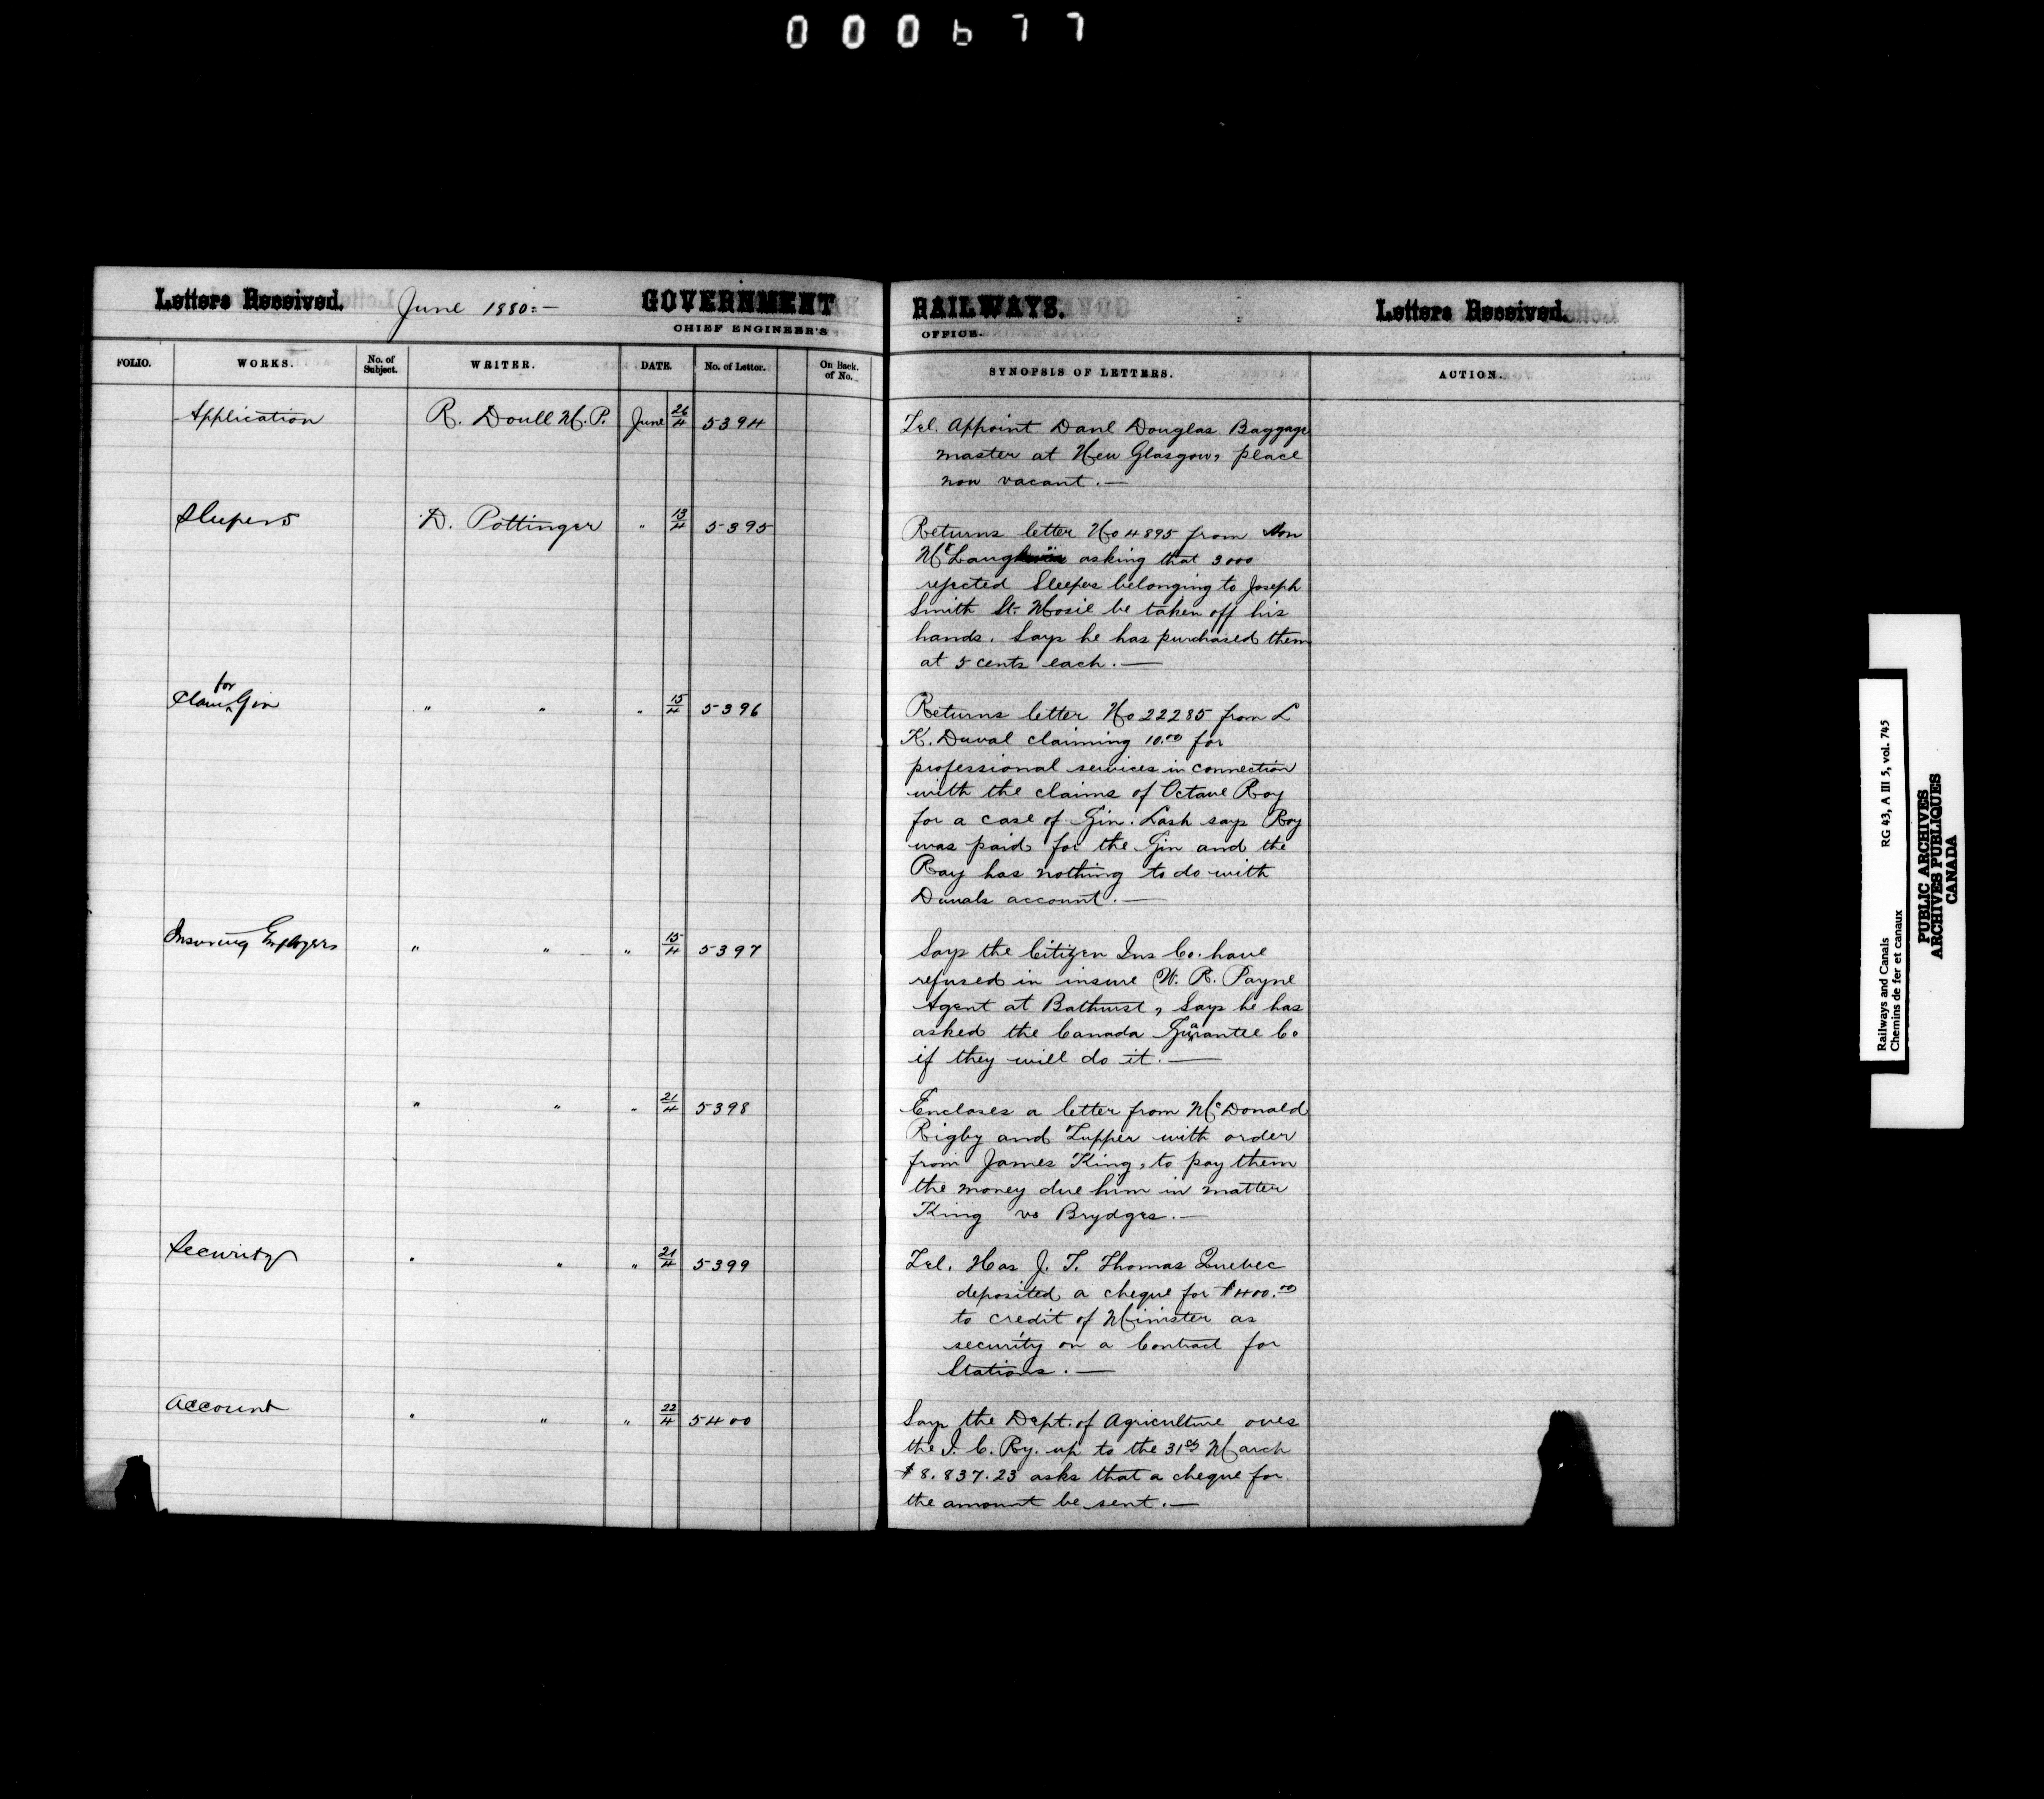 000677
Letters Received. June 1880:- GOVERNMENT RAILWAYS. Letters Received.
CHIEF ENGINEER'S OFFICE.
FOLIO. WORKS. No. of Subject. WRITER. DATE. No. of Letter. On Back. of No. SYNOPSIS OF LETTERS. ACTION.
Application R. Doull M.P. June 26/4 5394 Tel. Appoint Danl Douglas Baggage
master at New Glasgow, place
now vacant.—
Sleepers D. Pottinger " 13/4 5395 Returns letter No 4895 from
asking that 3000
rejected Sleepers belonging to Joseph
Smith St. Mosie be taken off his
hands. Says he has purchased them
at 5 cents each.—
Claim for Gin " " " 15/4 5396 Returns letter No 22285 from L
K. Duval claiming 10.00 for
professional services in connection
with the claims of Octave Roy
for a case of Gin. Lash says Roy
was paid for the Gin and the
Ray has nothing to do with
Duvals account.—
Insuring Employees " " " 15/4 5397 Says the Citizen Ins Co. have
refused in insure W. R. Payne
Agent at Bathurst, Says he has
asked the Canada Guarantee Co
if they will do it.—
" " " 21/4 5398 Encloses a letter from McDonald
Rigby and Tupper with order
from James King, to pay them
the money due him in matter
King vs Brydges.—
Security " " " 21/4 5399 Tel. Has J. T. Thomas Quebec
deposited a cheque for $400.00
to credit of Minister as
security on a Contract for
Stations.—
Account " " " 22/4 5400 Says the Dept. of Agriculture owes
the I. C. Ry. up to the 31st March
$8.837.23 asks that a cheque for
the amount be sent.—
Railways and Canals RG 43, A III 5, vol. 745
Chemins de fer et canaux
PUBLIC ARCHIVES
ARCHIVES PUBLIQUES
CANADA